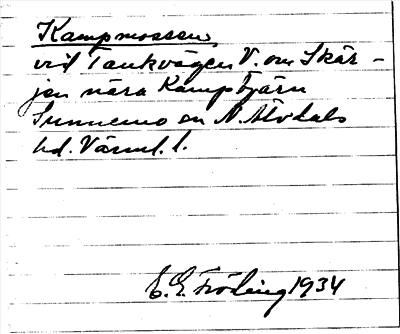 Kampmossen
vid Tankvägen V. om Skär-
jen nära Kampstjärn
Sunnemo sn N. Älvdals
hd. Värml. l.
E. G. Fröding 1934